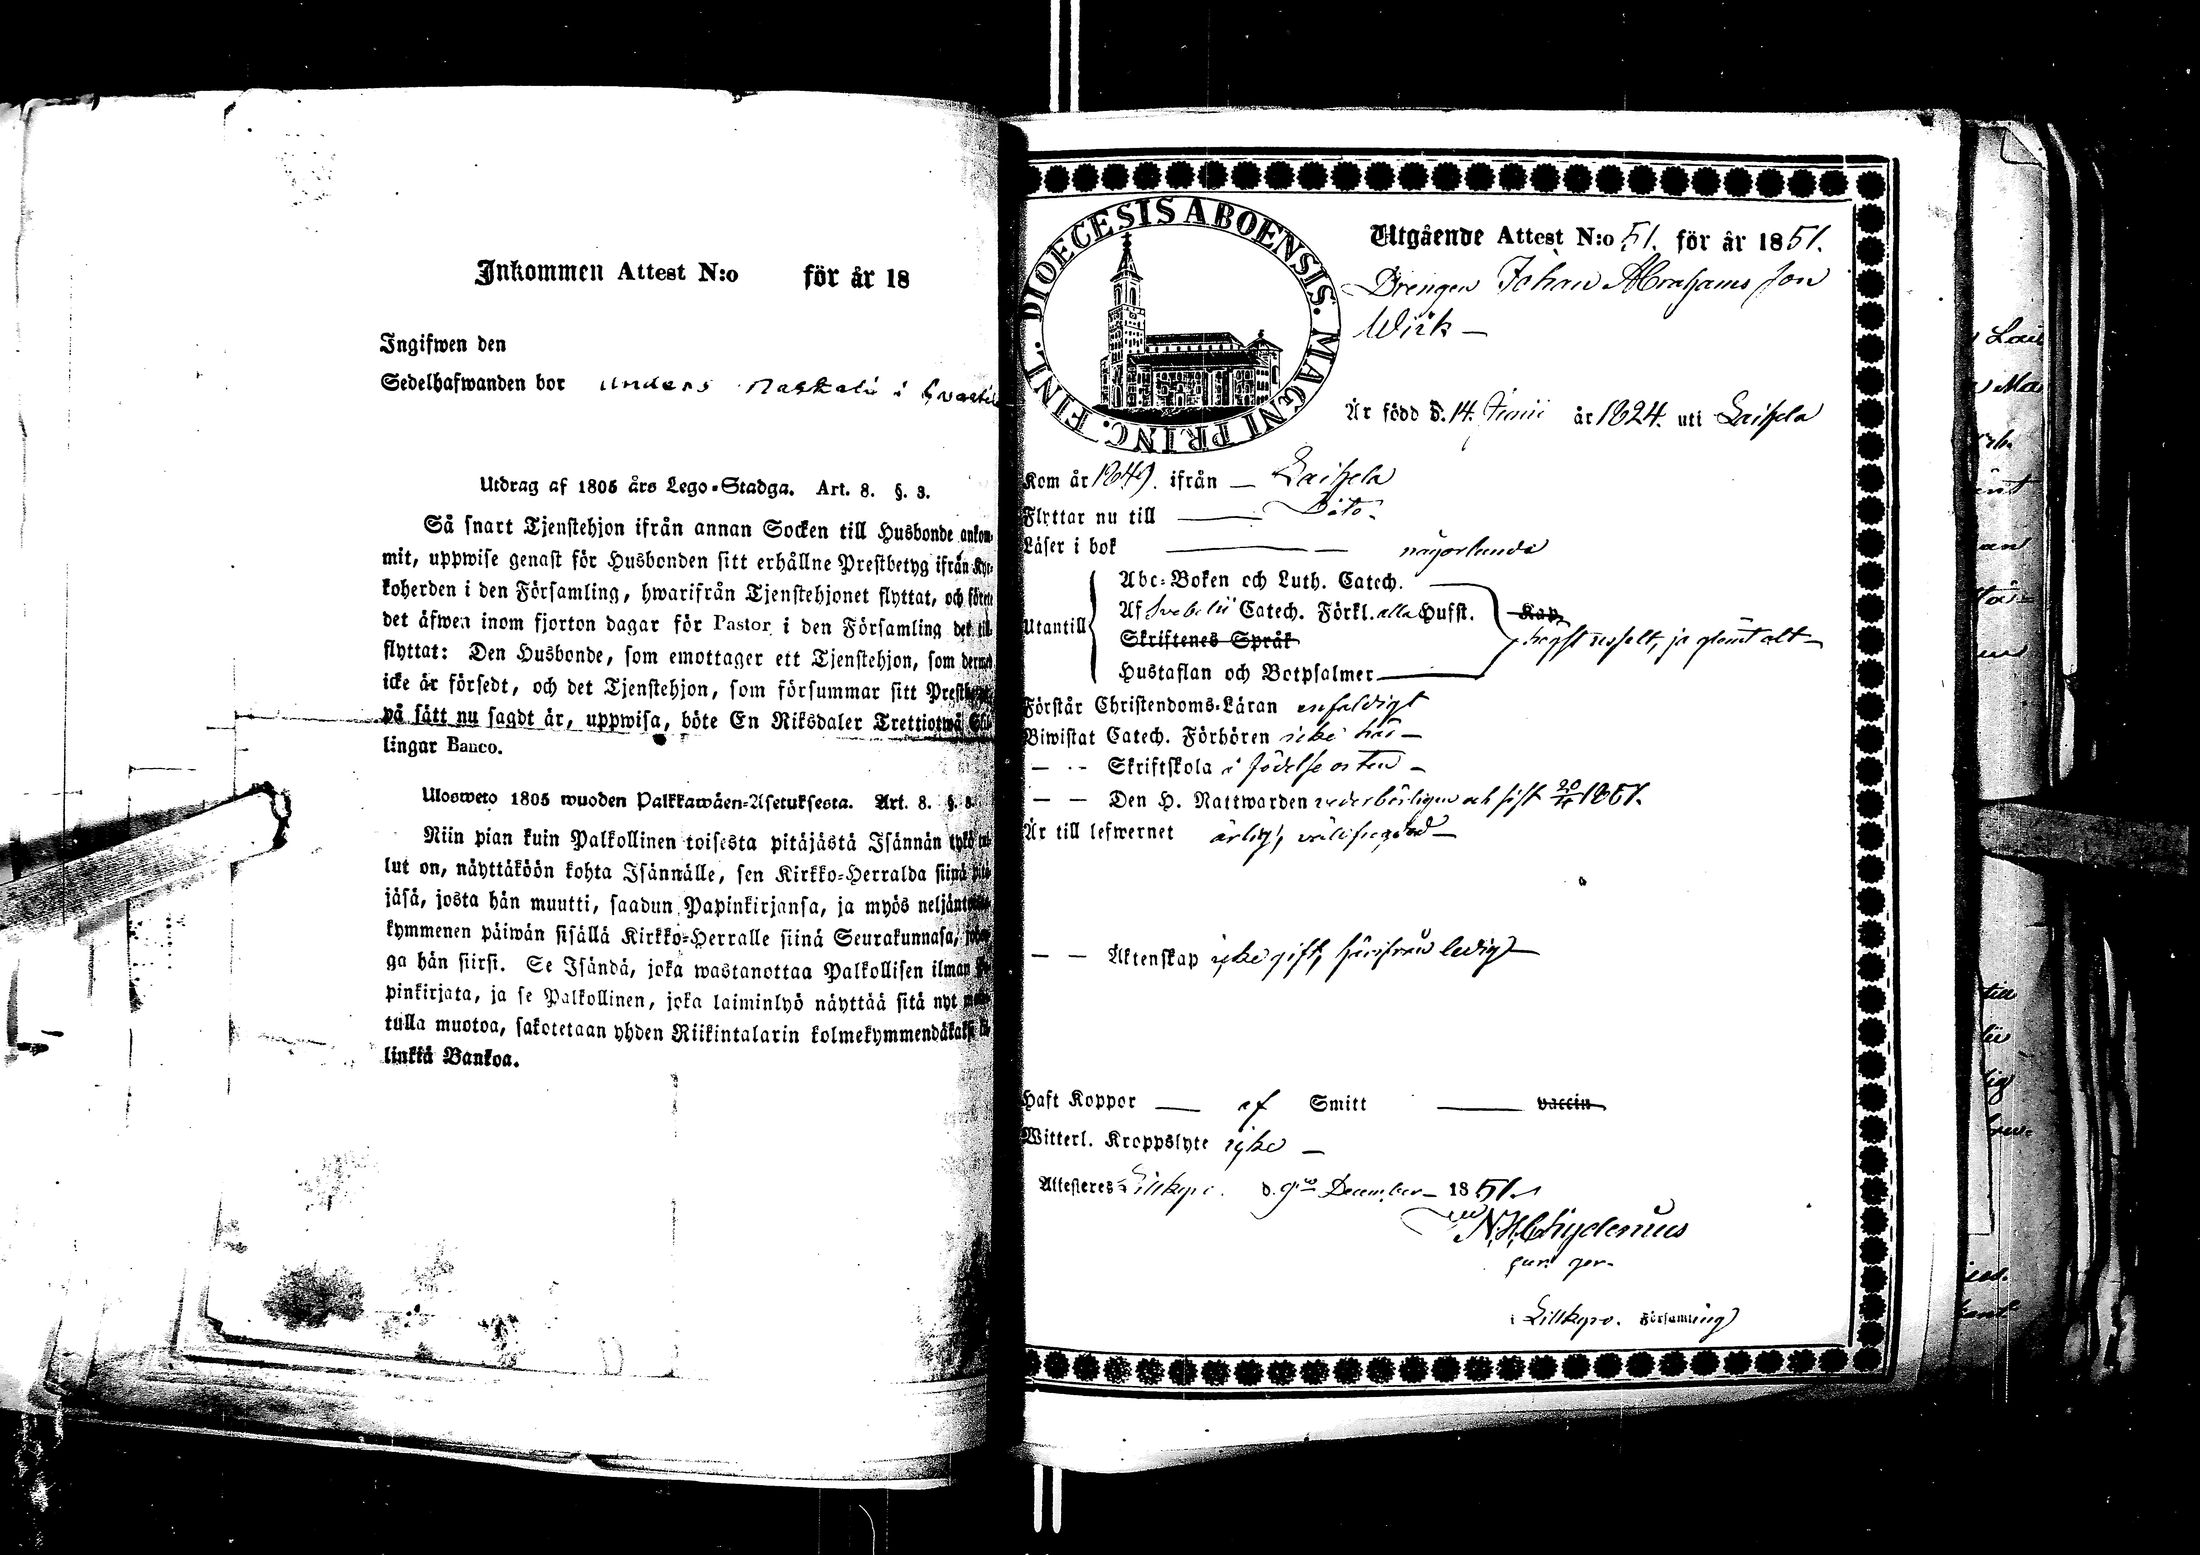 Inkommen Attest N:o för år 18
Ingifwen den
Sedelhafwanden bor Anders i
Utdrag af 1805 års Lego-Stadga. Art. 8. §. 3.
Så snart Tjenstehjon ifrån annan Socken till Husbonde ankom-
mit, uppwise genast för Husbonden sitt erhållne Prestbetyg ifrån Kyr-
koherden i den Församling, hwarifrån Tjenstehjonet flyttat, och förete
det äfwen inom fjorton dagar för Pastor i den Församling det till-
flyttat: Den Husbonde, som emottager ett Tjenstehjon, som dermed
icke är försedt, och det Tjenstehjon, som försummar sitt Prestbetyg,
på sätt nu sagdt är, uppwisa, böte En Riksdaler Trettiotwå Skil-
lingar Banco.
Ulosweto 1805 wuoden Palkkawäen-Asetuksesta. Art. 8. §. 3.
Niin pian kuin Palkollinen toisesta pitäjästä Isännän tykö tul-
lut on, näyttäköön kohta Isännälle, sen Kirkko-Herralda siinä pitä-
jäsä, josta hän muutti, saadun Papinkirjansa, ja myös neljäntoista-
kymmenen päiwän sisällä Kirkko-Herralle siinä Seurakunnasa,
ga hän siirsi. Se Isändä, joka wastanottaa Palkollisen ilman Pa-
pinkirjata, ja se Palkollinen, joka laiminlyö näyttää sitä nyt
tulla muotoa, sakotetaan yhden Riikintalarin kolmekymmendäkaksi kil-
linkiä Bankoa.
DIOECESIS ABOENSIS. MAGNI PRINC. FINL.
Utgående Attest N:o 51. för år 1851.
Drengen Johan Abrahams son
Wirk
Är född d. 14. Junii år 1824. uti Laihela
Kom år 1849. ifrån Laihela
Flyttar nu till Dito.
Läser i bok någorlunda
Abc-Boken och Luth. Catech.
Utantill Af Svebelii Catech. Förkl. alla Hufst. Kap.
Skriftenes Språk
Hustaflan och Botpsalmer
Förstår Christendoms-Läran enfaldigt
Biwistat Catech. Förhören icke här
Skriftskola i födelse orten
Den H. Nattwarden vederbörligen och sist 1851.
Är till lefwernet ärlig, välfrejdad
Äktenskap icke gift, härifrån ledig
Haft Koppor af Smitt vaccin
Witterl. Kroppslyte icke
Attesteres Lillkyro. d. 9 December 1851.
N.H. Chydenius
i Lillkyro. Församling